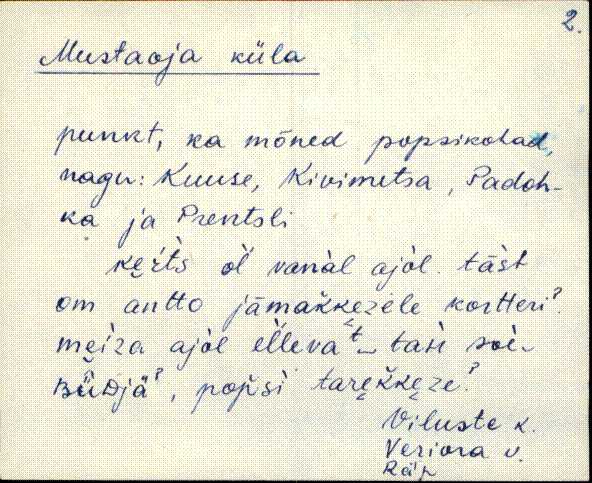 2.
Mustaoja küla
punkt, ka mõned popsikohad,
nagu: Kuuse, Kivimetsa, Padoh-
ka ja Prentsli
ol̀ vanàl ajòl. täśt
om antto jāmakkezele kortteri?.
meiza ajòl
popśi tarekkeze?
Viluste k.
Veriora v.
Räp